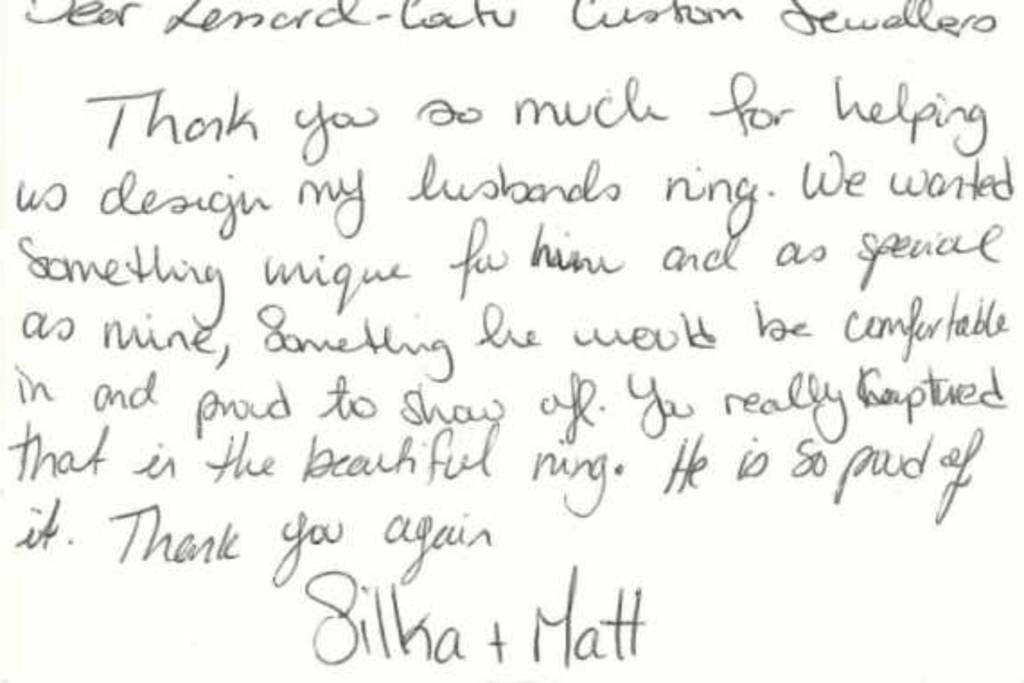 Dear Lessard-Catu Custom Jewellers
Thank you so much for helping
us design my husbands ring. We wanted
something unique for him and as special
as mine, something he would be comfortable
in and proud to show off. You really captured
that in the beautiful ring. He is so proud of
it. Thank you again
Silka + Matt